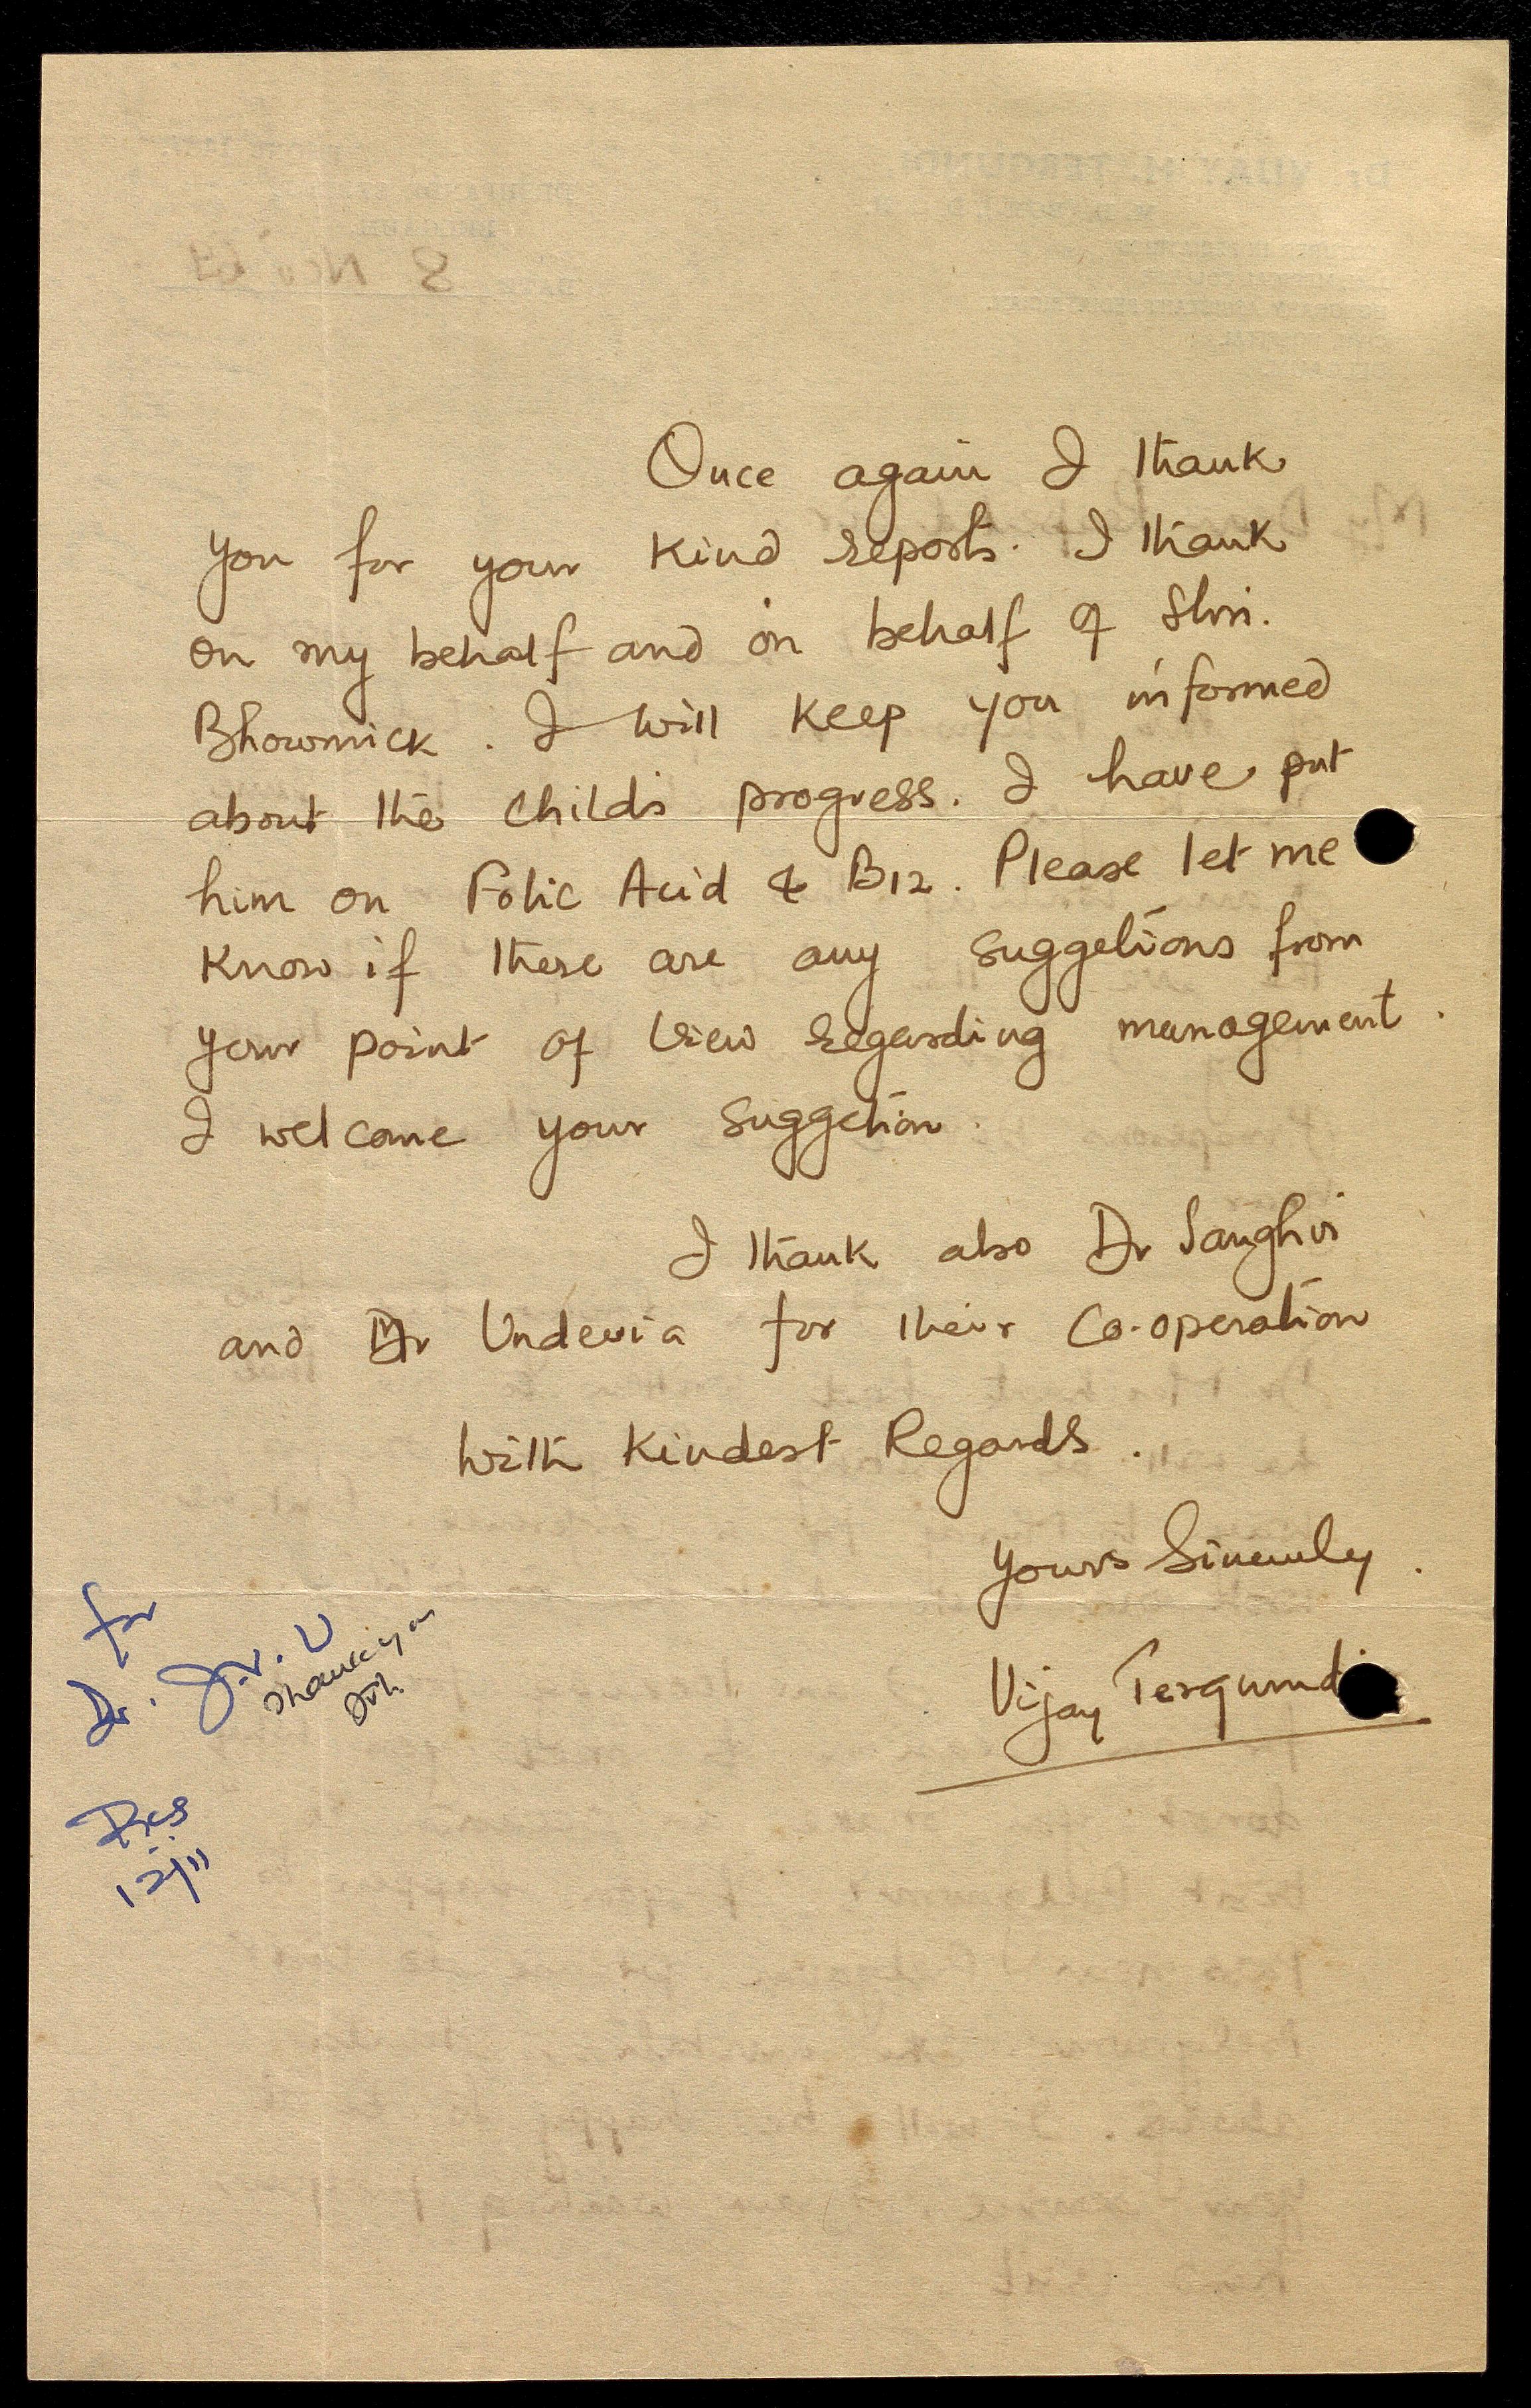 Once again I thank
you for your kind reports. I thank
on my behalf and on behalf of Shri.
Bhowmick. I will keep you informed
about the childs progress. I have put
him on Folic Acid & B12. Please let me
know if there are any suggetions from
your point of view regarding management.
I welcome your suggetion.
I thank also Dr Sanghvi
and Dr Undevia for their Co-operation
With Kindest Regards.
Yours Sincerely.
Vijay Tergundi
for
Dr. J.V.U
Thank you
12/11